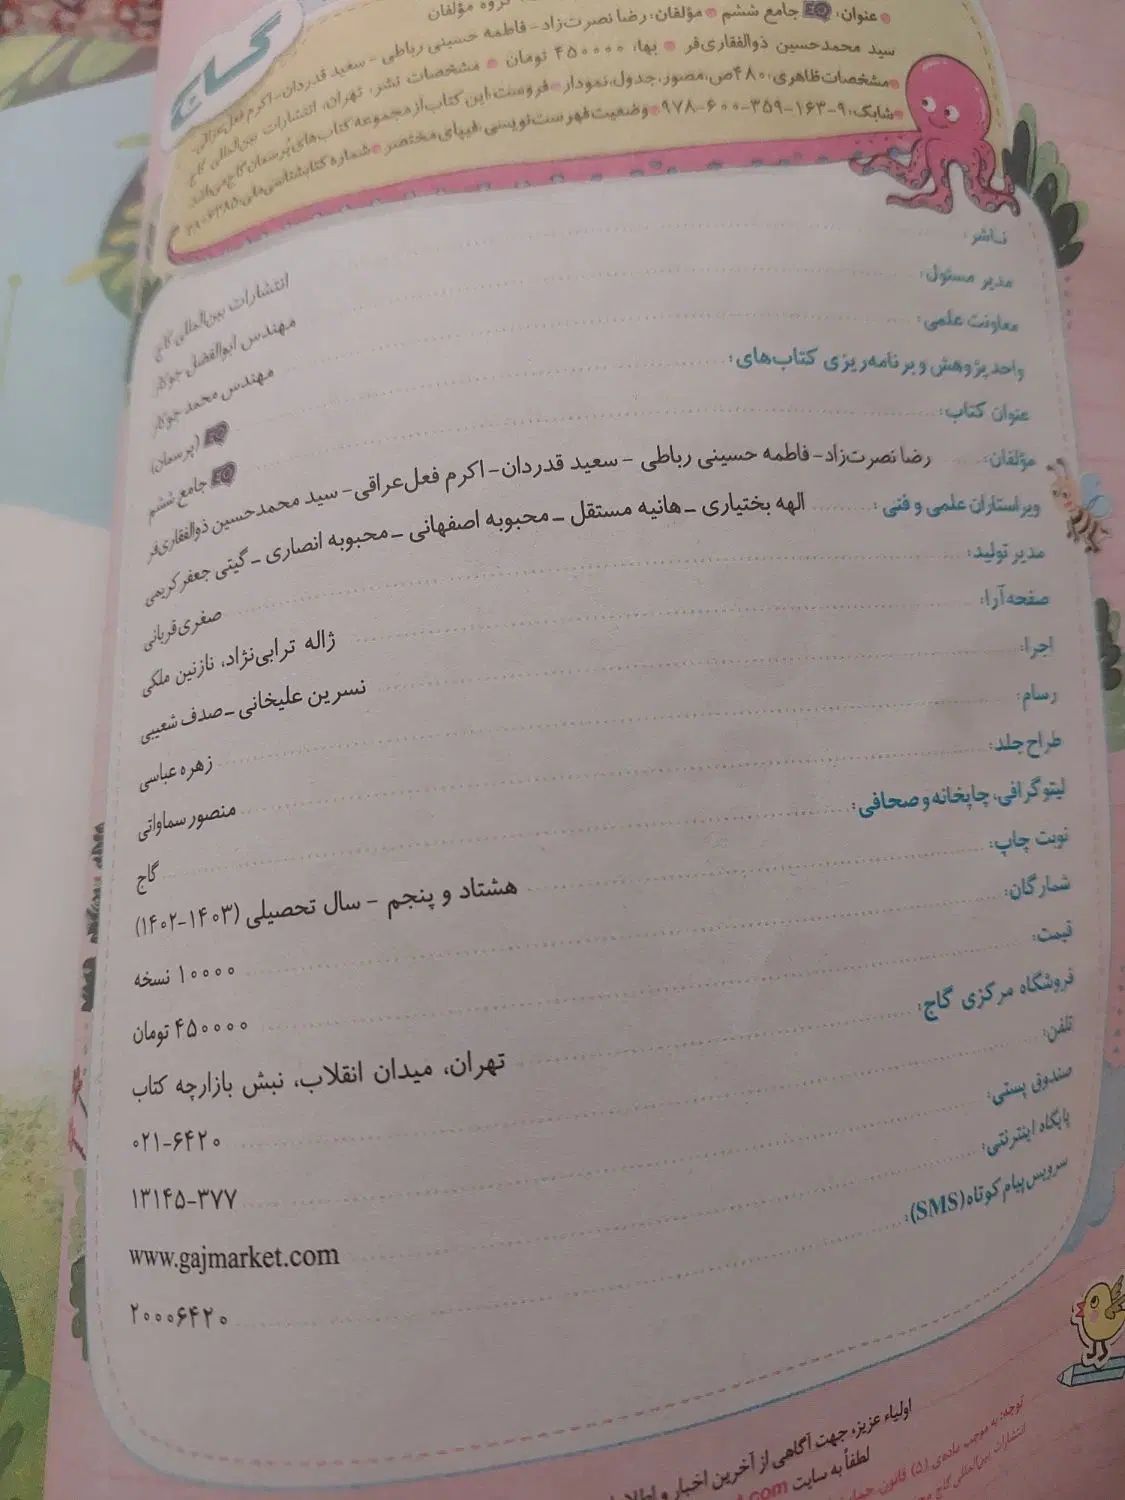 گاج
گروه مؤلفان
عنوان: EQ جامع ششم • مؤلفان: رضا نصرت‌زاد - فاطمه حسینی رباطی - سعید قدردان - اکرم فعل‌عراقی -
سید محمدحسین ذوالفقاری‌فر • بها: ۴۵۰۰۰۰ تومان • مشخصات نشر: تهران، انتشارات بین‌المللی گاج
• مشخصات ظاهری: ۴۸۰ص، مصور، جدول، نمودار • فروست: این کتاب از مجموعه کتاب‌های پُرسمان گاج می‌باشد.
• شابک: ۹-۱۶۳-۳۵۹-۶۰۰-۹۷۸ • وضعیت فهرست‌نویسی: فیپای مختصر • شماره کتابشناسی ملی:
ناشر: انتشارات بین‌المللی گاج
مدیر مسئول: مهندس ابوالفضل جوکار
معاونت علمی: مهندس محمد جوکار
واحد پژوهش و برنامه‌ریزی کتاب‌های: EQ (پرسمان)
عنوان کتاب: EQ جامع ششم
مؤلفان: رضا نصرت‌زاد - فاطمه حسینی رباطی - سعید قدردان - اکرم فعل‌عراقی - سید محمدحسین ذوالفقاری‌فر
ویراستاران علمی و فنی: الهه بختیاری ـ هانیه مستقل ـ محبوبه اصفهانی ـ محبوبه انصاری ـ گیتی جعفر کریمی
مدیر تولید: صغری قربانی
صفحه‌آرا: ژاله ترابی‌نژاد، نازنین ملکی
اجرا: نسرین علیخانی ـ صدف شعیبی
رسام: زهره عباسی
طراح جلد: منصور سماواتی
لیتوگرافی، چاپخانه و صحافی: گاج
نوبت چاپ: هشتاد و پنجم - سال تحصیلی (۱۴۰۳-۱۴۰۲)
شمارگان: ۱۰۰۰۰ نسخه
قیمت: ۴۵۰۰۰۰ تومان
فروشگاه مرکزی گاج: تهران، میدان انقلاب، نبش بازارچه کتاب
تلفن: ۰۲۱-۶۴۲۰
صندوق پستی: ۱۳۱۴۵-۳۷۷
پایگاه اینترنتی: www.gajmarket.com
سرویس پیام کوتاه (SMS): ۲۰۰۰۶۴۲۰
اولیاء عزیز، جهت آگاهی از آخرین اخبار و
لطفاً به سایت
توجه: به موجب ماده‌ی (۵) قانون
انتشارات بین‌المللی گاج